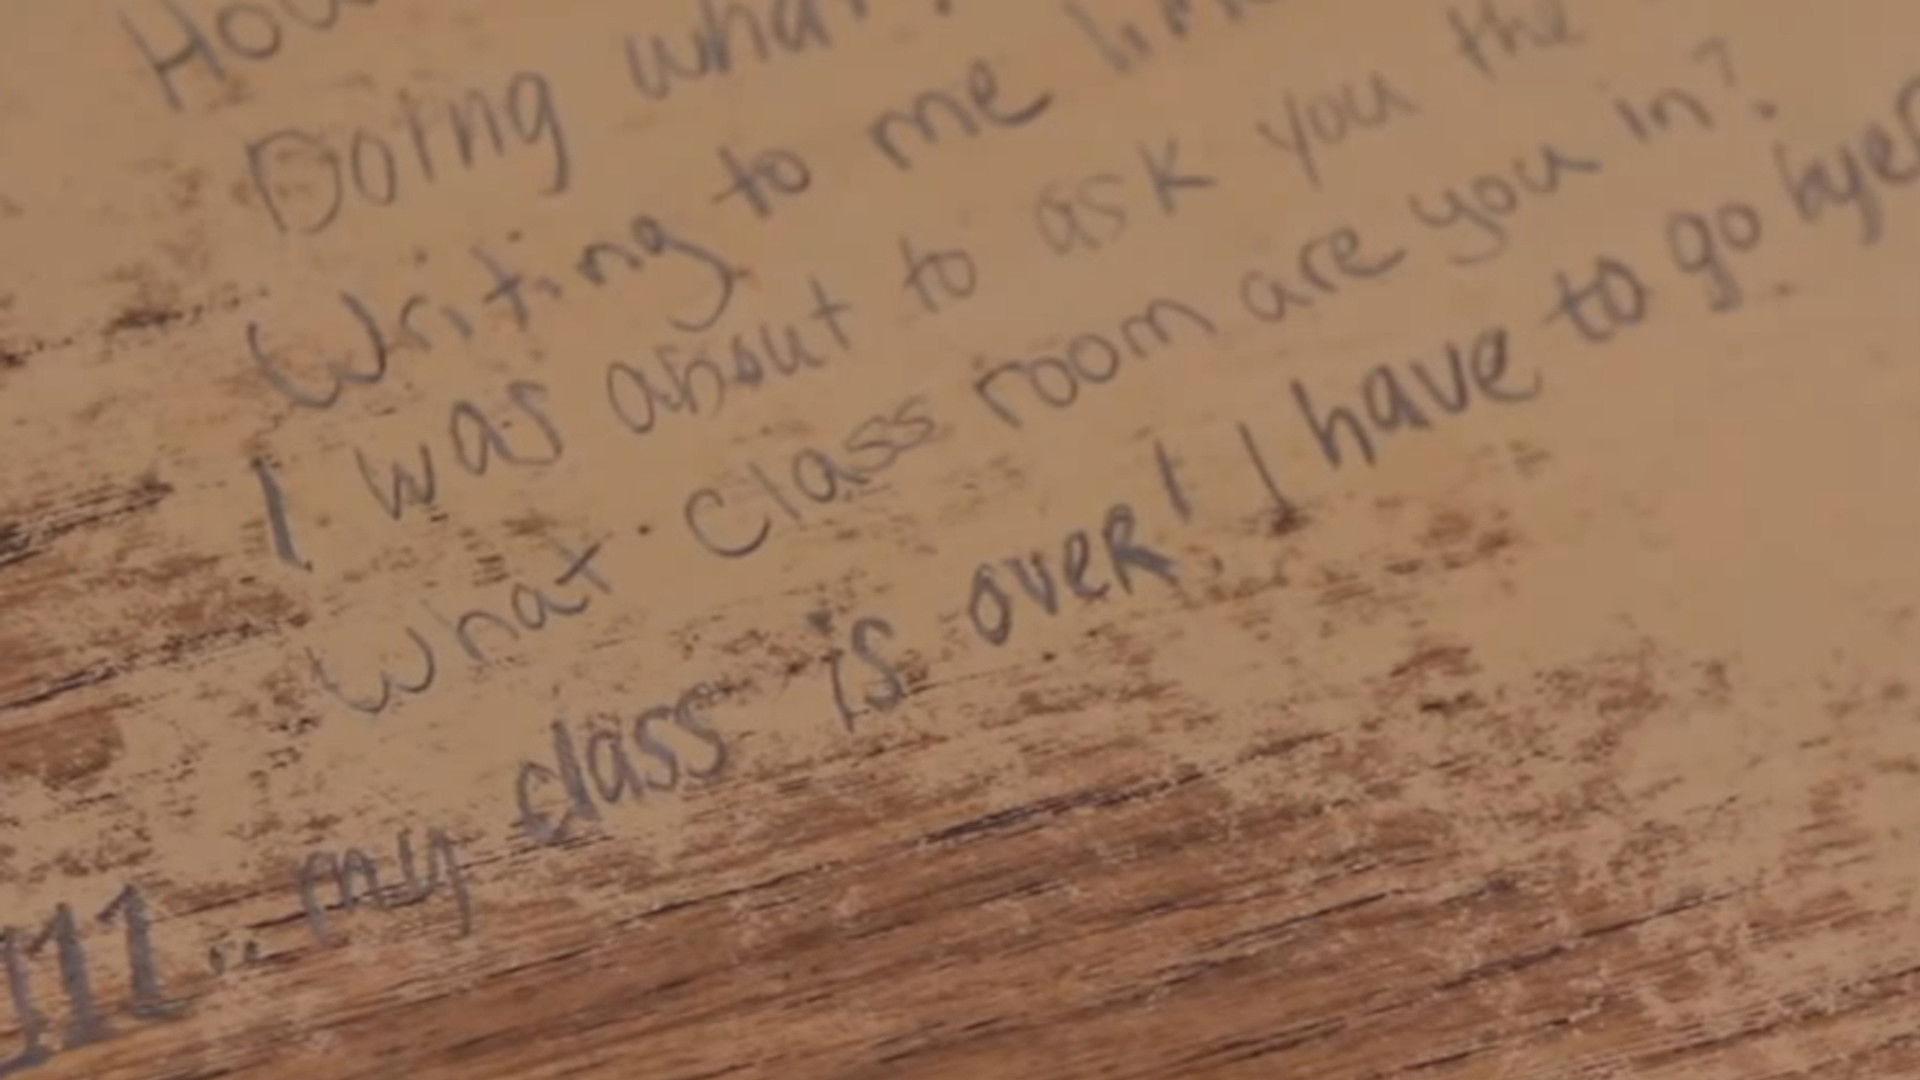 Doing what?
Writing to me
I was about to ask you the
What class room are you in?
my class is over! I have to go bye